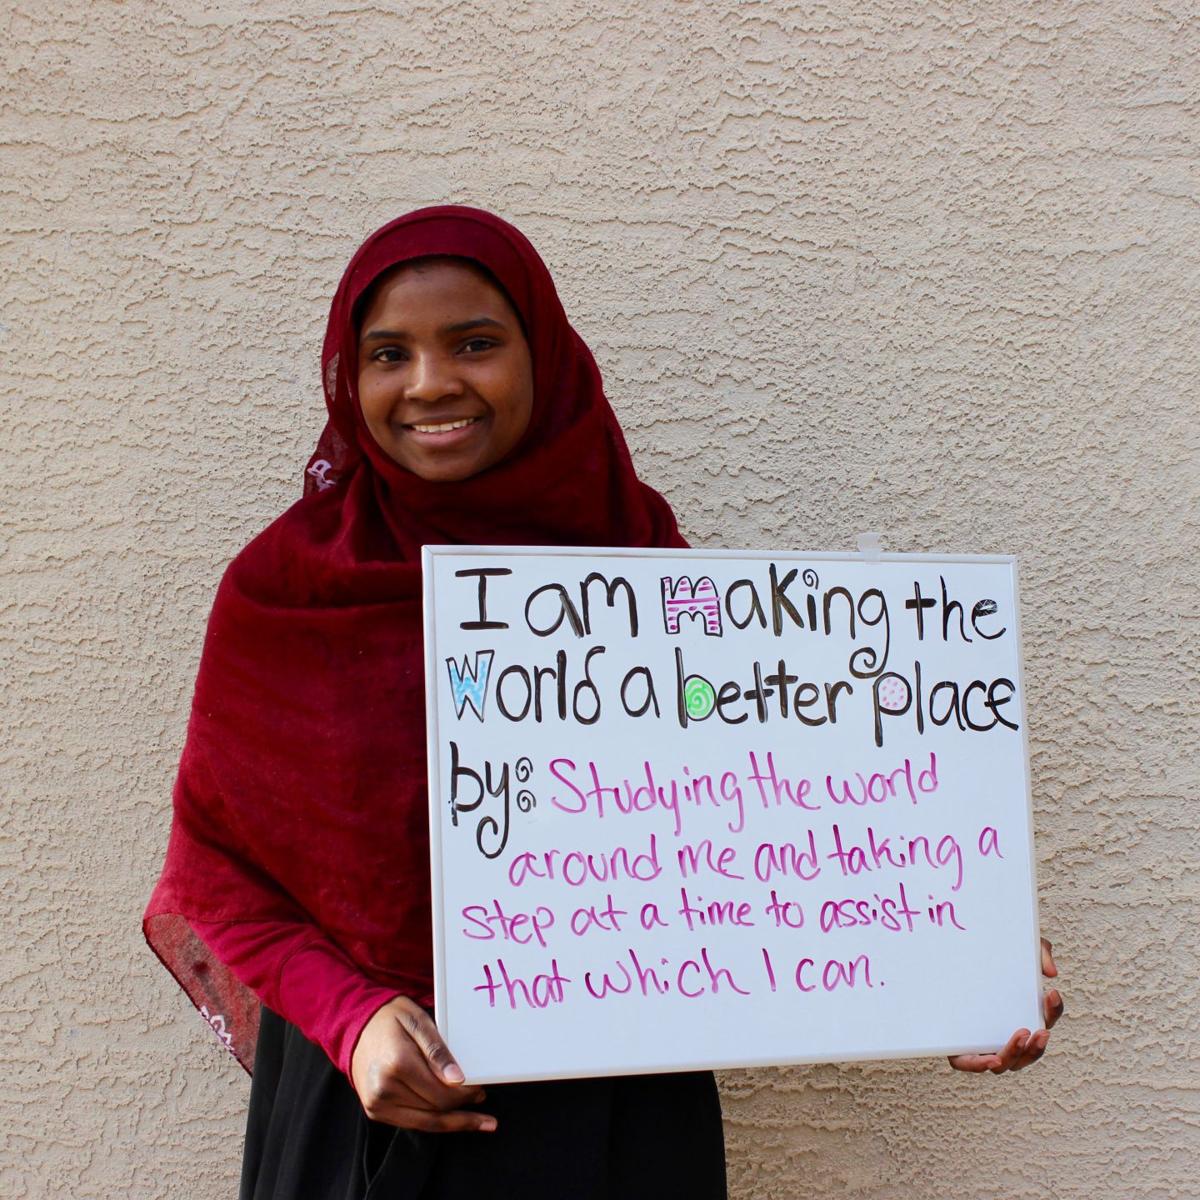 I am making the
World a better place
by: Studying the world
around me and taking a
step at a time to assist in
that which I can.